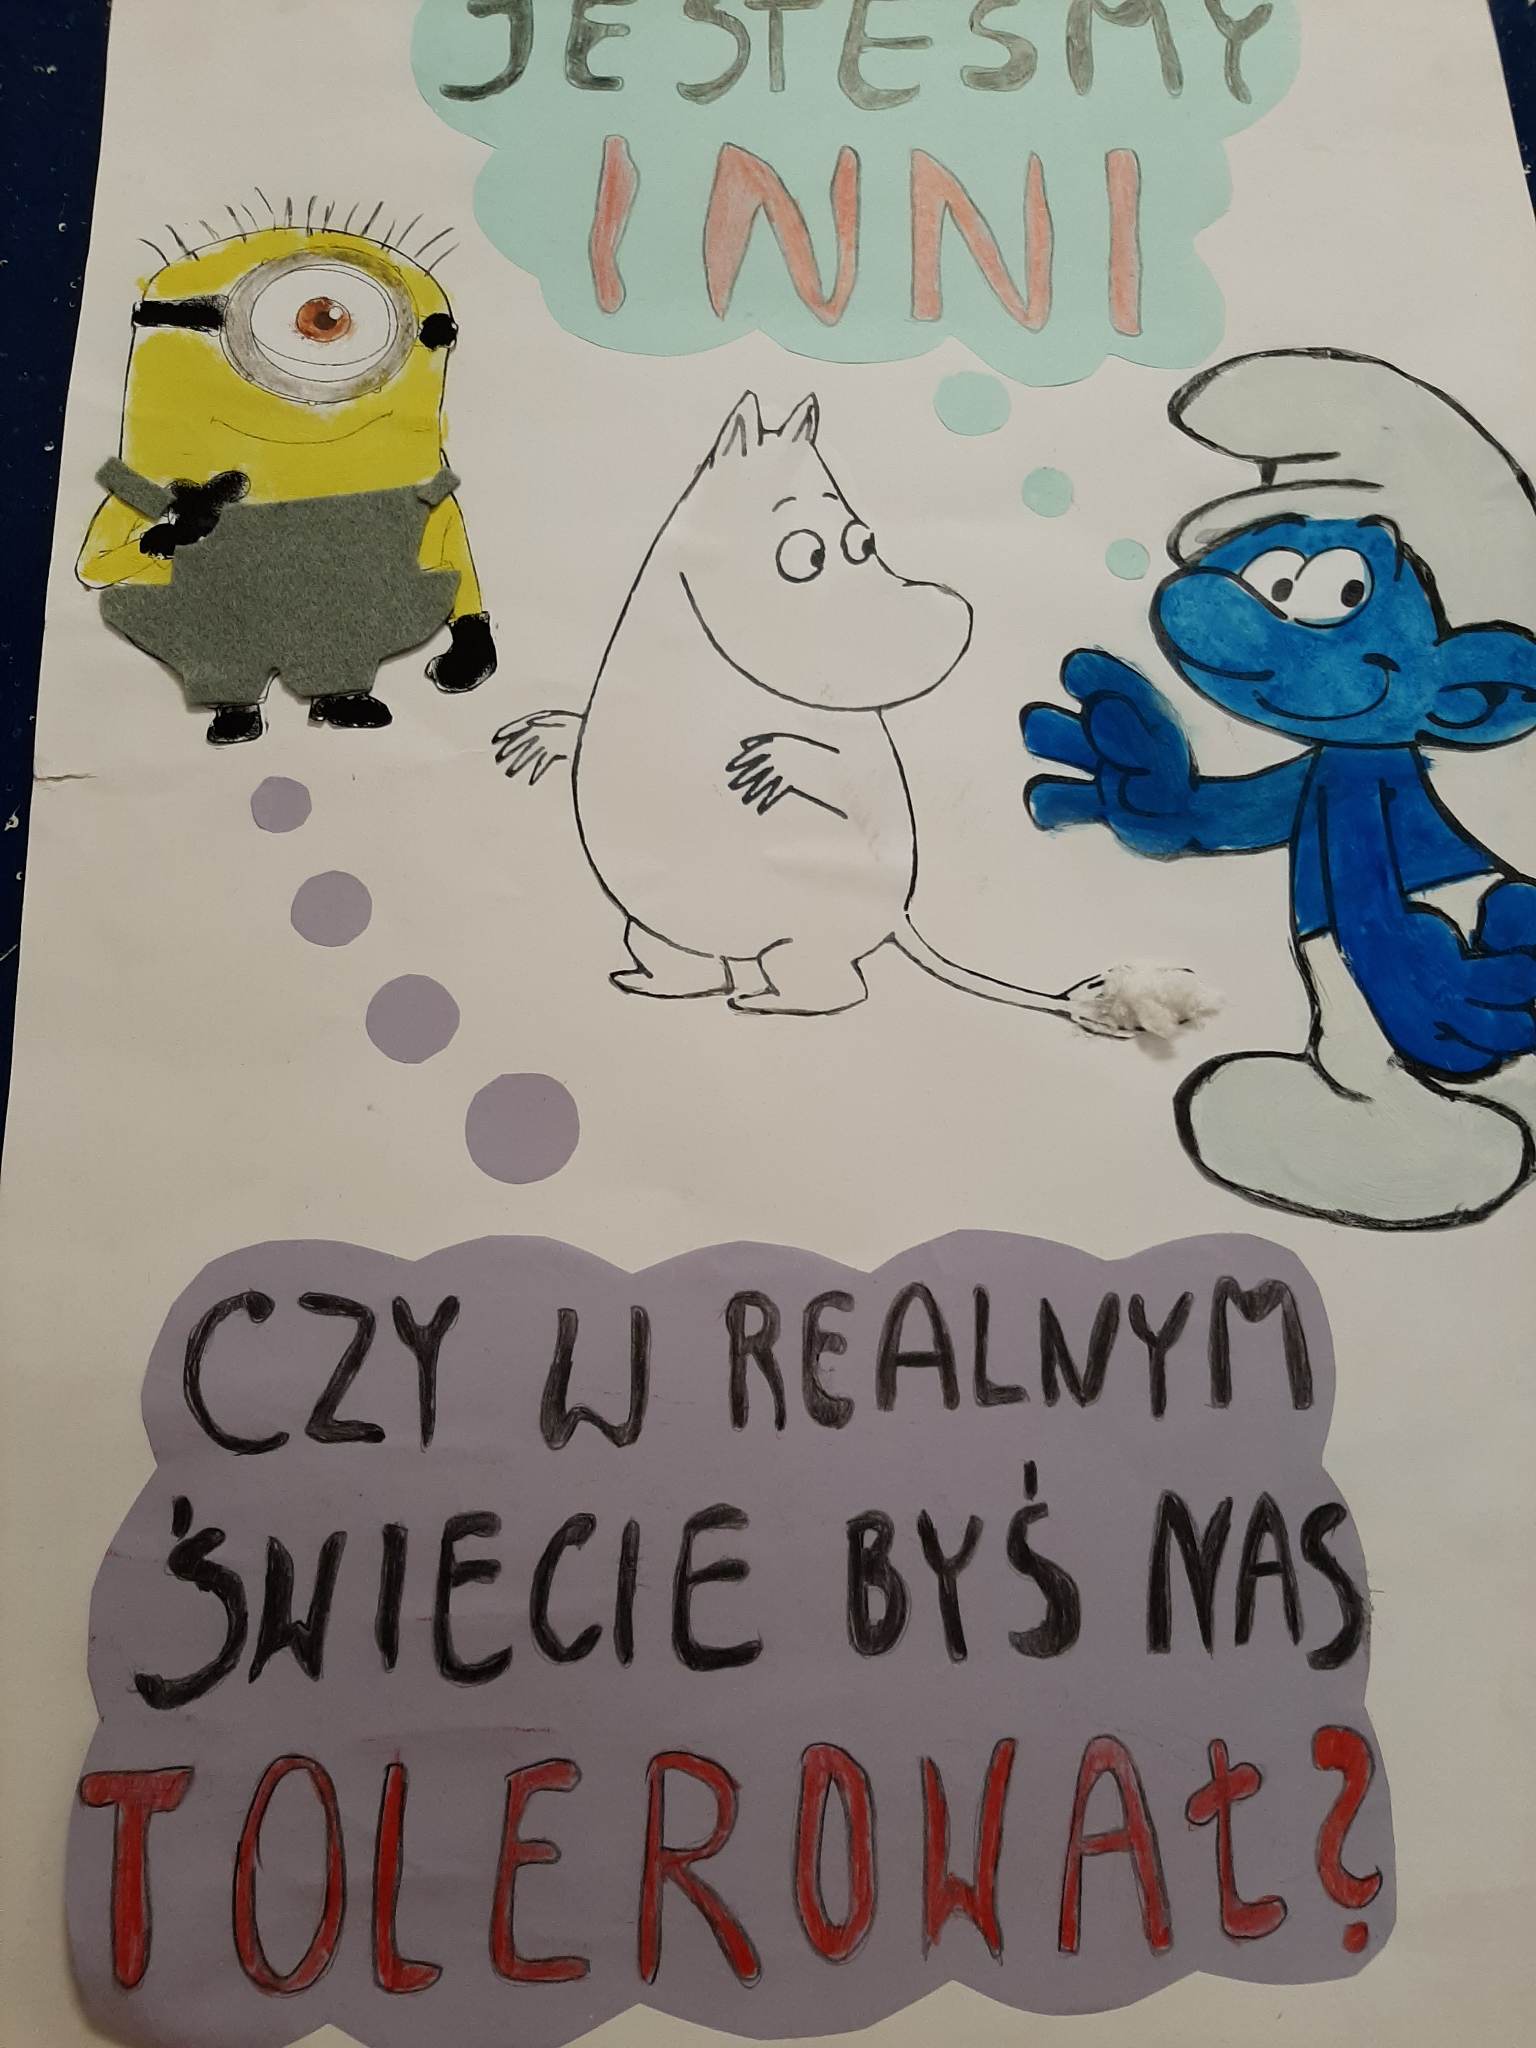 JESTEŚMY
INNI
CZY W REALNYM
ŚWIECIE BYŚ NAS
TOLEROWAŁ?